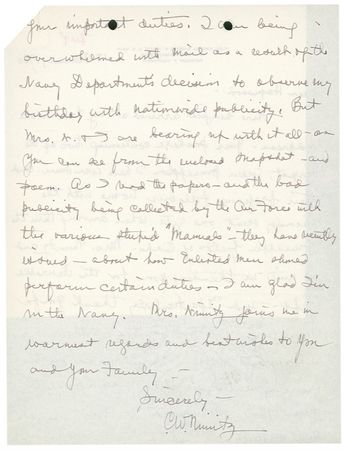 your important duties. I am being
overwhelmed with mail as a result of the
Navy Department's decision to observe my
birthday with nationwide publicity. But
Mrs. N. & I are bearing up with it all - as
you can see from the inclosed snapshot - and
poem. As I read the papers - and the bad
publicity being collected by the Air Force with
the various stupid "Manuals" - they have recently
issued - about how Enlisted Men should
perform certain duties - I am glad I'm
in the Navy. Mrs. Nimitz joins me in
warmest regards and best wishes to you
and your Family -
Sincerely -
C.W. Nimitz